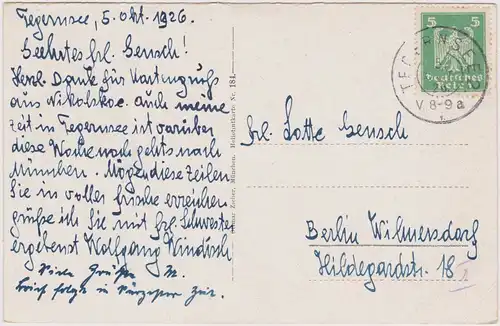 Tegernsee, 5. Okt. 1926.
Geehrtes Frl. Gensch!
Herzl. Dank für Kartengruß
aus Nikolskoe. Auch meine
Zeit in Tegernsee ist vorüber
diese Woche noch gehts nach
München. Mögen diese Zeilen
Sie in voller Frische erreichen
grüße ich Sie mit Frl. Schwester
ergebenst Wolfgang Windisch
Viele Grüße
Brief folgt in kürzester Zeit.
München. Nr. 184.
TEGERNS
V. 8-9 a
5 5
Deutsches
Reich
Frl. Lotte Gensch
Berlin Wilmersdorf
Hildegardstr. 18